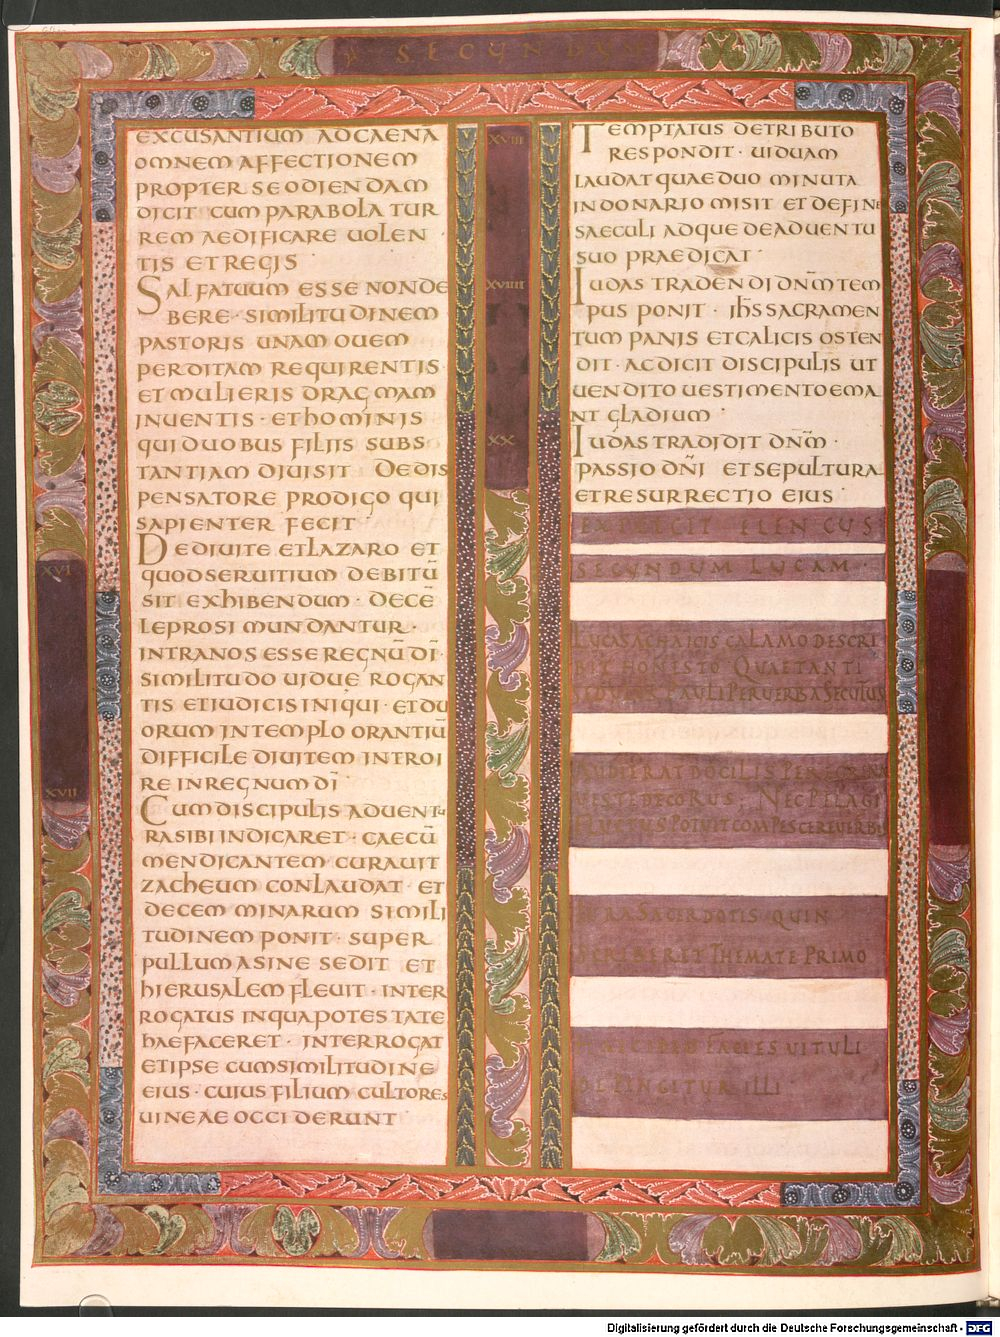 SECUNDUM
EXCUSANTIUM ADCAENA
OMNEM AFFECTIONEM
PROPTER SE ODIENDAM
DICIT CUM PARABOLA TUR
REM AEDIFICARE UOLEN
TIS ET REGIS ·
SAL FATUUM ESSE NONDE
BERE · SIMILITUDINEM
PASTORIS UNAM OUEM
PERDITAM REQUIRENTIS ·
ET MULIERIS DRAGMAM
INUENTIS · ET HOMINIS
QUI DUOBUS FILIIS SUBS
TANTIAM DIUISIT DEDIS
PENSATORE PRODIGO QUI
SAPIENTER FECIT
XVI
DE DIUITE ET LAZARO ET
QUOD SERUITIUM DEBITŪ
SIT EXHIBENDUM · DECĒ
LEPROSI MUNDANTUR ·
INTRA NOS ESSE REGNŪ DĪ ·
SIMILITUDO UIDUE ROGAN
TIS ET IUDICIS INIQUI · ET DU
ORUM IN TEMPLO ORANTIŪ
DIFFICILE DIUITEM INTROI
RE IN REGNUM DĪ
XVII
CUM DISCIPULIS ADUENTU
RA SIBI INDICARET · CAECŪ
MENDICANTEM CURAUIT
ZACHEUM CONLAUDAT · ET
DECEM MINARUM SIMILI
TUDINEM PONIT · SUPER
PULLUM ASINE SEDIT ET
HIERUSALEM FLEUIT · INTER
ROGATUS IN QUA POTESTATE
HAEFACERET · INTERROGAT
ET IPSE CUM SIMILITUDINE
EIUS · CUIUS FILIUM CULTORES
UINEAE OCCIDERUNT
XVIII
TEMPTATUS DE TRIBUTO
RESPONDIT · UIDUAM
LAUDAT QUAE DUO MINUTA
IN DONARIO MISIT ET DE FINE
SAECULI ADQUE DE ADUENTU
SUO PRAEDICAT ·
XVIIII
IUDAS TRADENDI DN̄M TEM
PUS PONIT · IH̄S SACRAMEN
TUM PANIS ET CALICIS OSTEN
DIT · AC DICIT DISCIPULIS UT
UENDITO UESTIMENTO EMA
NT GLADIUM ·
XX
IUDAS TRADIDIT DN̄M ·
PASSIO DN̄I ET SEPULTURA
ET RESURRECTIO EIUS ·
EXPLICIT ELENCUS
SECUNDUM LUCAM ·
LUCAS ACHAICIS CALAMO DESCRI
BIT HONESTO QUAE TANTI
SEDULUS PAULI PER UERBA SECUTUS
AUDIERAT DOCILIS PEREGRINA
UESTE DECORUS · NEC PELAGI
FLUCTUS POTUIT COMPESCERE UERBI
IURA SACERDOTIS QUIN
SCRIBERET THEMATE PRIMO
FACIES UITULI
DEPINGITUR ILLI
Digitalisierung gefördert durch die Deutsche Forschungsgemeinschaft - DFG